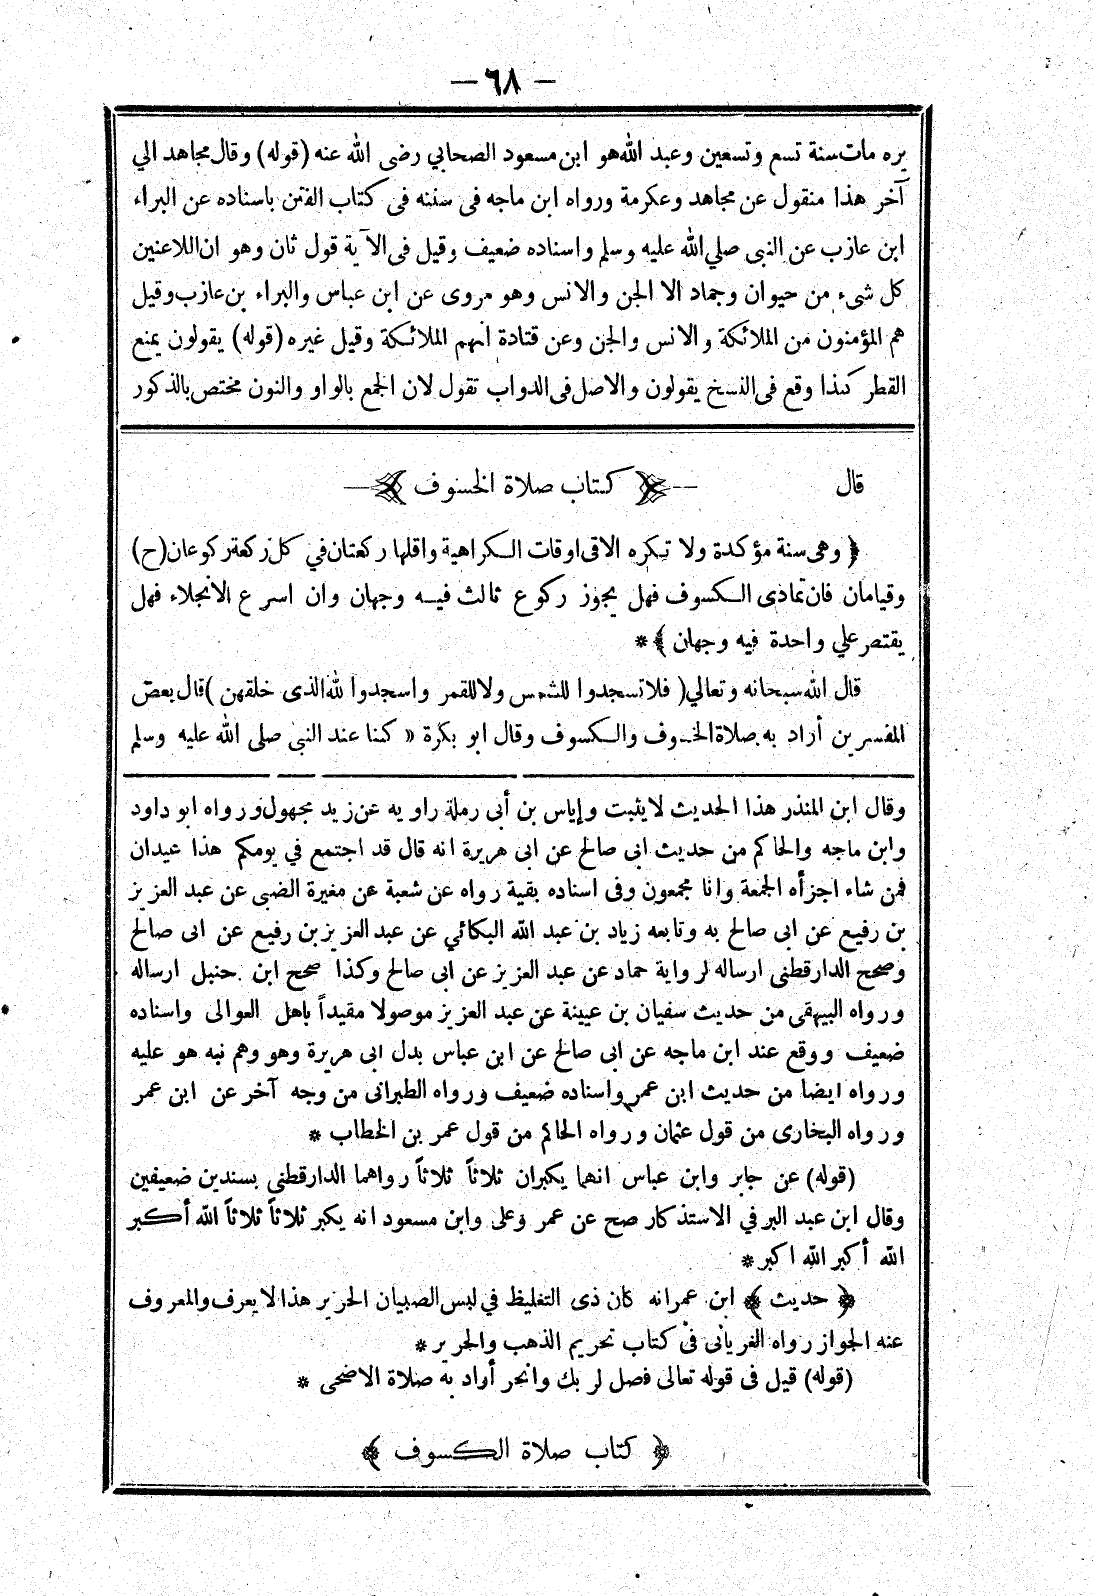 — ٦٨ —
يره مات سنة تسع وتسعين وعبد الله هو ابن مسعود الصحابي رضى الله عنه (قوله) وقال مجاهد الي
آخر هذا منقول عن مجاهد وعكرمة ورواه ابن ماجه فى سننه فى كتاب الفتن باسناده عن البراء
ابن عازب عن النبى صلي الله عليه وسلم واسناده ضعيف وقيل فى الآية قول ثان وهو ان اللاعنين
كل شىء من حيوان وجماد الا الجن والانس وهو مروى عن ابن عباس والبراء بن عازب وقيل
هم المؤمنون من الملائكة والانس والجن وعن قتادة انهم الملائكة وقيل غيره (قوله) يقولون يمنع
القطر كذا وقع فى النسخ يقولون والاصل فى الدواب تقول لان الجمع بالواو والنون مختص بالذكور
قال ﴿ كتاب صلاة الخسوف ﴾
﴿ وهى سنة مؤكدة ولا تكره الا فى اوقات الكراهية واقلها ركعتان في كل ركعة ركوعان (ح)
وقيامان فان تمادى الكسوف فهل يجوز ركوع ثالث فيه وجهان وان اسرع الانجلاء فهل
يقتصر علي واحدة فيه وجهان ﴾ *
قال الله سبحانه وتعالي ( فلا تسجدوا للشمس ولا للقمر واسجدوا لله الذى خلقهن ) قال بعض
المفسرين أراد به صلاة الخسوف والكسوف وقال ابو بكرة « كنا عند النبى صلى الله عليه وسلم
وقال ابن المنذر هذا الحديث لا يثبت وإياس بن أبى رملة راويه عن زيد مجهول ورواه ابو داود
وابن ماجه والحاكم من حديث ابى صالح عن ابى هريرة انه قال قد اجتمع في يومكم هذا عيدان
فمن شاء اجزأه الجمعة وانا مجمعون وفى اسناده بقية رواه عن شعبة عن مغيرة الضبى عن عبد العزيز
بن رفيع عن ابى صالح به وتابعه زياد بن عبد الله البكائي عن عبد العزيز بن رفيع عن ابى صالح
وصحح الدارقطنى ارساله لرواية حماد عن عبد العزيز عن ابى صالح وكذا صحح ابن حنبل ارساله
ورواه البيهقى من حديث سفيان بن عيينة عن عبد العزيز موصولا مقيداً باهل العوالى واسناده
ضعيف ووقع عند ابن ماجه عن ابى صالح عن ابن عباس بدل ابى هريرة وهو وهم نبه هو عليه
ورواه ايضا من حديث ابن عمر واسناده ضعيف ورواه الطبرانى من وجه آخر عن ابن عمر
ورواه البخارى من قول عثمان ورواه الحاكم من قول عمر بن الخطاب *
(قوله) عن جابر وابن عباس انهما يكبران ثلاثاً ثلاثاً رواهما الدارقطني بسندين ضعيفين
وقال ابن عبد البر في الاستذكار صح عن عمر وعلى وابن مسعود انه يكبر ثلاثاً ثلاثاً الله أكبر
الله أكبر الله اكبر *
﴿ حديث ﴾ ابن عمر انه كان ذى التغليظ في لبس الصبيان الحرير هذا لا يعرف والمعروف
عنه الجواز رواه الفريابى فى كتاب تحريم الذهب والحرير *
(قوله) قيل فى قوله تعالى فصل لربك وانحر أراد به صلاة الاضحى *
﴿ كتاب صلاة الكسوف ﴾